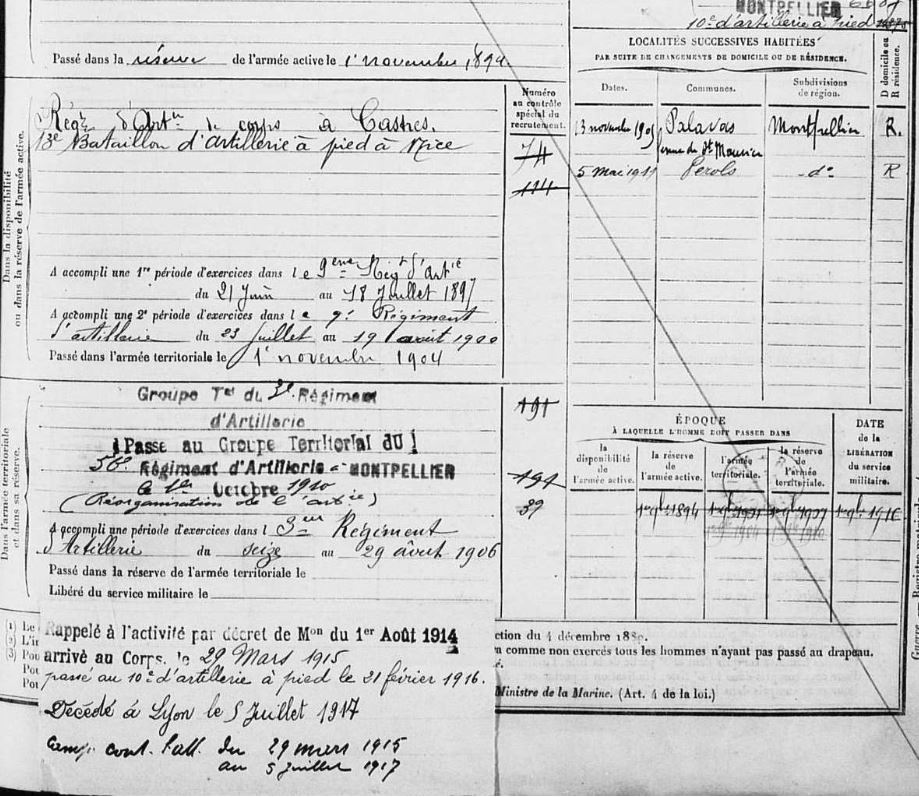 MONTPELLIER
10e d'artillerie à pied
Passé dans la réserve de l'armée active le 1 novembre 1894
Dans la disponibilité
ou dans la réserve de l'armée active.
Régt d'Artie de corps à Castres.
13e Bataillon d'artillerie à pied à Nice
A accompli une 1re période d'exercices dans le 9eme Régt d'Artie
du 21 Juin au 18 Juillet 1897
A accompli une 2e période d'exercices dans le 9e Régiment
d'artillerie du 23 Juillet au 19 août 1900
Passé dans l'armée territoriale le 1 novembre 1904
Numéro
au contrôle
spécial du
recrutement.
74
114
LOCALITÉS SUCCESSIVES HABITÉES
PAR SUITE DE CHANGEMENTS DE DOMICILE OU DE RÉSIDENCE.
D domicile ou
R résidence.
Dates.
Communes.
Subdivisions
de région.
13 novembre 1905 Palavas Montpellier R.
5 mai 1911 Perols do R
Dans l'armée territoriale
et dans sa réserve.
Groupe Tal du 3e Régiment
d'Artillerie
Passe au Groupe Territorial du
56e Régiment d'Artillerie à MONTPELLIER
le 1er Octobre 1910
(Réorganisation de l'artie)
A accompli une période d'exercices dans l 3eme Régiment
d'Artillerie du seize au 29 août 1906
Passé dans la réserve de l'armée territoriale le
Libéré du service militaire le
191
191
39
ÉPOQUE
À LAQUELLE L'HOMME DOIT PASSER DANS
DATE
de la
LIBÉRATION
du service
militaire.
la
disponibilité
de
l'armée active.
la réserve
de
l'armée active.
l'armée
territoriale.
la réserve
de
l'armée
territoriale.
1894
(1) Le
(2) L'in
(3) Pou
Pou
Pou
Rappelé à l'activité par décret de Mon du 1er Août 1914
arrivé au Corps. le 29 Mars 1915
passé au 10e d'artillerie à pied le 21 février 1916.
Décédé à Lyon le 5 Juillet 1917
Camp. cont. l'all. Du 29 mars 1915
au 5 juillet 1917
ction du 4 décembre 1889.
comme non exercés tous les hommes n'ayant pas passé au drapeau.
Ministre de la Marine. (Art. 4 de la loi.)